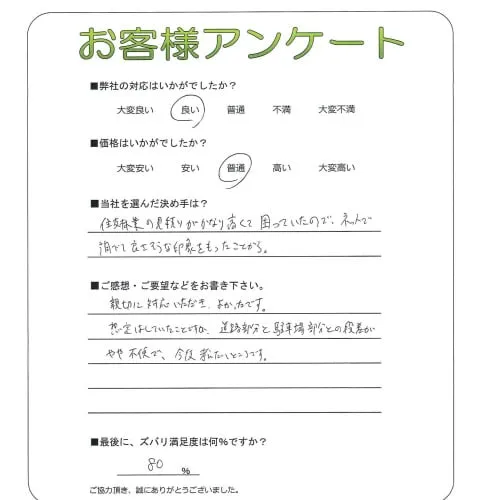 お客様アンケート
■弊社の対応はいかがでしたか？
大変良い 良い 普通 不満 大変不満
■価格はいかがでしたか？
大変安い 安い 普通 高い 大変高い
■当社を選んだ決め手は？
住林業の見積りがかなり高くて困っていたので、ネットで
調べて良さそうな印象をもったことから。
■ご感想・ご要望などをお書き下さい。
親切に対応いただき、よかったです。
想定はしていたことですが、道路部分と駐車場部分との段差が
やや不便で、今後
ところです。
■最後に、ズバリ満足度は何%ですか？
80 %
ご協力頂き、誠にありがとうございました。